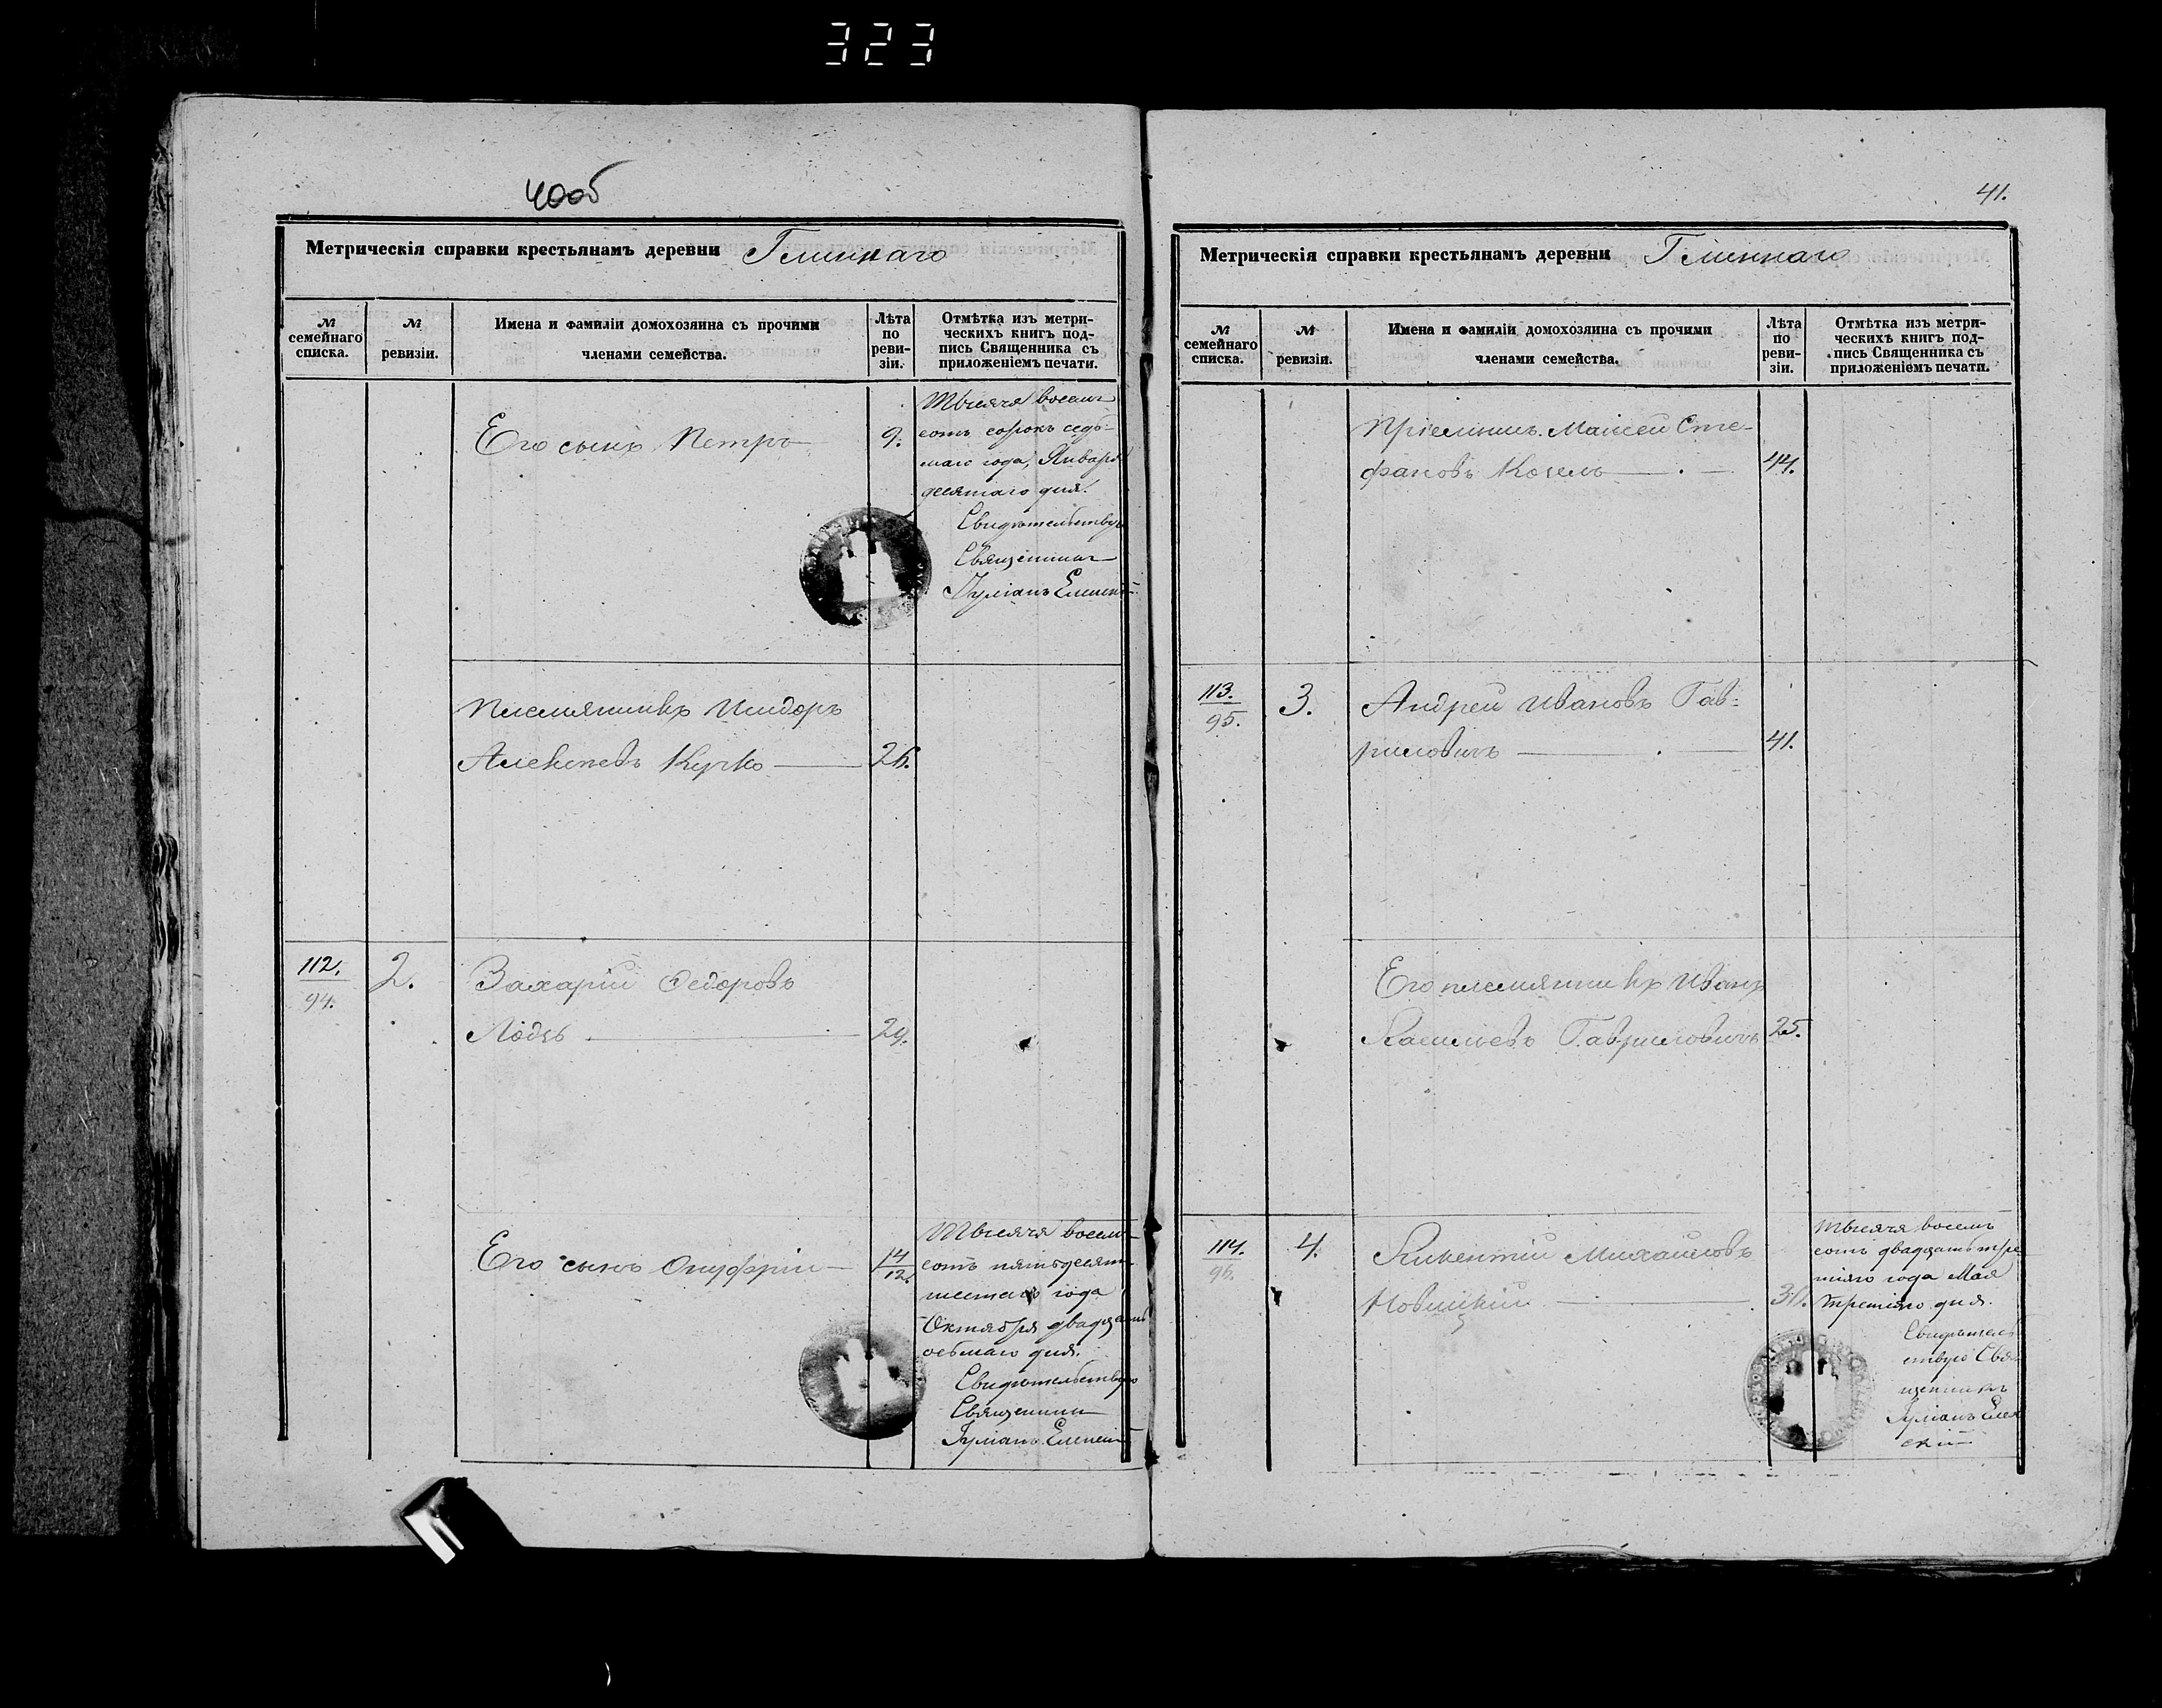 323
40об
Метрическія справки крестьянамъ деревни Глиннаго
№ семейнаго списка.
№ ревизіи.
Имена и фамиліи домохозяина съ прочими членами семейства.
Лѣта по ревизіи.
Отмѣтка изъ метрическихъ книгъ подпись Священника съ приложеніемъ печати.
Его сынъ Петръ
9.
Тысяча восемь
сотъ сорокъ седь-
маго года, Января
десятаго дня.
Свидѣтельствую
Священникъ
Іуліанъ
Племянникъ Исидоръ
Алексѣевъ Курко
26.
112.
94.
2.
Захарій Федоровъ
Лодзь
29.
Его сынъ Онуфрій
14/12.
Тысяча восемь
сотъ пятьдесятъ
шестаго года
Октября двадцать
осьмаго дня.
Свидѣтельствую
Священникъ
Іуліанъ
41.
Метрическія справки крестьянамъ деревни Глиннаго
№ семейнаго списка.
№ ревизіи.
Имена и фамиліи домохозяина съ прочими членами семейства.
Лѣта по ревизіи.
Отмѣтка изъ метрическихъ книгъ подпись Священника съ приложеніемъ печати.
Пріемышъ Моисей Сте-
фановъ Козелъ
44.
113.
95.
3.
Андрей Ивановъ Гав-
риловичъ
41.
Его племянникъ Иванъ
Васильевъ Гавриловичъ
25.
114.
96.
4.
Викентій Михайловъ
Новицкій
Тысяча восемь
сотъ двадцать тре
тьяго года Мая
третьяго дня.
Свидѣтель
ствую Свя
щенникъ
Іуліанъ
скій